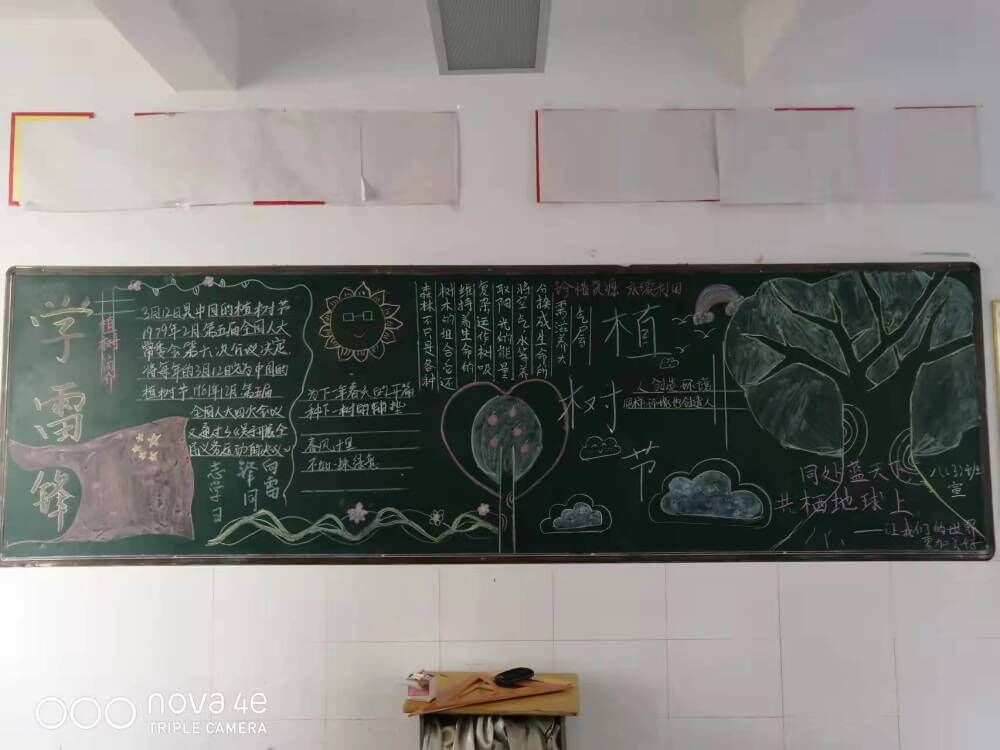 学雷锋
植树节
3月12日是中国的植树节
1979年2月第五届全国人大
常委会第六次会议决定
将每年的3月12日定为中国的
植树节 1981年12月第五届
全国人大四次会议
又通过了《关于开展全
民义务植树运动的决议》
向雷
锋同
志学习
为下一年春天的干旱
种下一树的
春风十里
不如一株绿意
森林不只是各种
树木的组合它还
维持着生命的
复杂运作树吸
取阳光的能量
将空气水等养
分换成生命所
需滋养大
气层
珍惜资源 永续利用
植
树
节
人创造环境
同样环境也创造人
同处蓝天下
共栖地球上
——让我们的世界
更加美好
八(3)班
宣
nova 4e
TRIPLE CAMERA